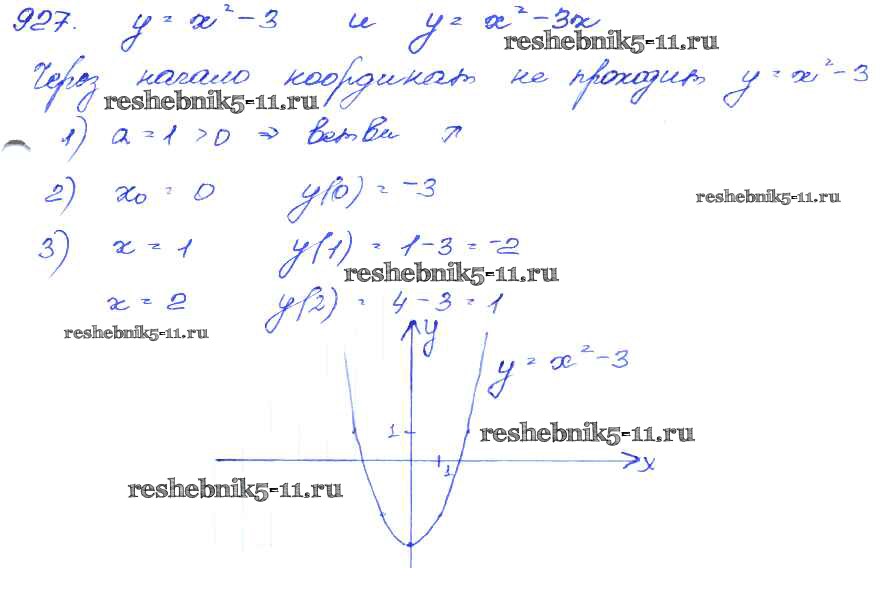 927. y = x² - 3 и y = x² - 3x
reshebnik5-11.ru
Через начало координат не проходит y = x² - 3
reshebnik5-11.ru
1) a = 1 > 0 ⇒ ветви ↑
2) x₀ = 0 y(0) = -3
reshebnik5-11.ru
3) x = 1 y(1) = 1 - 3 = -2
reshebnik5-11.ru
x = 2 y(2) = 4 - 3 = 1
reshebnik5-11.ru
y
y = x² - 3
1
reshebnik5-11.ru
1
x
reshebnik5-11.ru